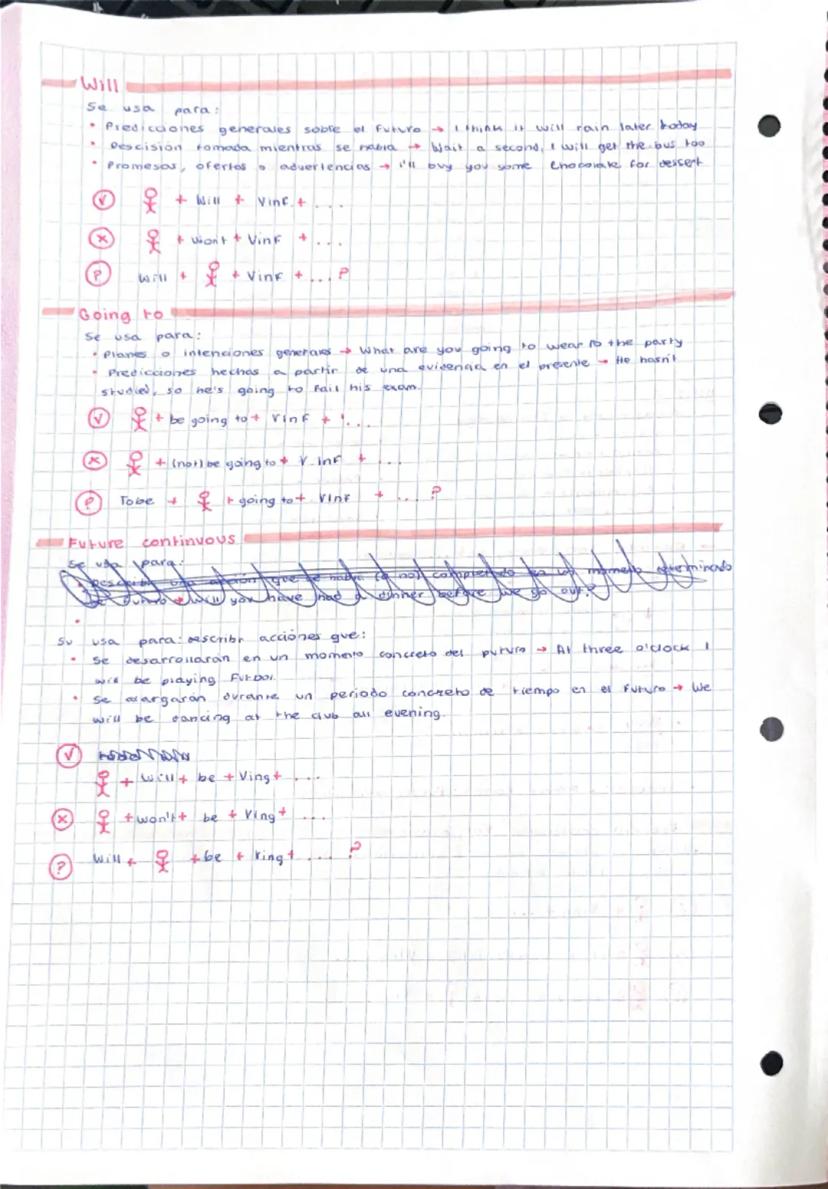 Will
Se usa para:
• Predicciones generales sobre el futuro → I think it will rain later today
• Descisión tomada mientras se habla → Wait a second, I will get the bus too
• Promesas, ofertas o advertencias → i'll buy you some chocolate for dessert
✓ + Will + Vinf + ...
× + won't + Vinf + ...
? Will + + Vinf + ... ?
Going to
Se usa para:
• Planes o intenciones generales → What are you going to wear to the party
• Predicciones hechas a partir de una evidencia en el presente → He hasn't
studied, so he's going to fail his exam.
✓ + be going to + Vinf + ...
× + (not) be going to + V.inf + ...
? To be + + going to + Vinf + ... ?
Future continuous
Se usa para:
que se habrá (o no) completado en un momento
futuro → Will you have had a dinner before we go out?
Su usa para: describir acciones que:
• Se desarrollarán en un momento concreto del puturo → At three o'clock I
will be playing Futbol.
• Se alargarán durante un periodo concreto de tiempo en el futuro → We
will be dancing at the club all evening.
✓
+ Will + be + Ving + ...
× + won't + be + Ving + ...
? Will + + be + Ving + .... ?